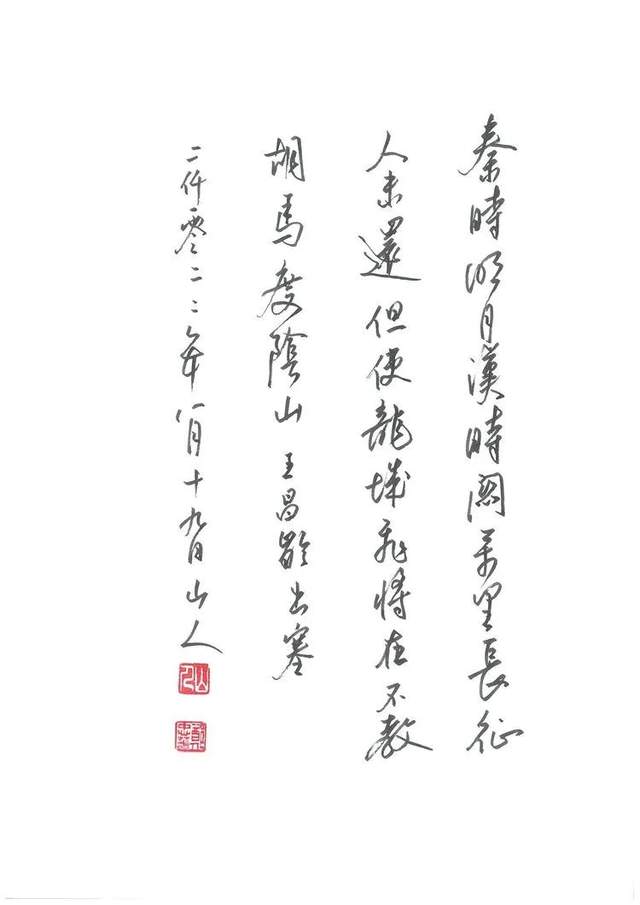 秦時明月漢時關萬里長征
人未還但使龍城飛將在不教
胡馬度陰山 王昌齡出塞
二仟零二二年八月十九日山人
山人